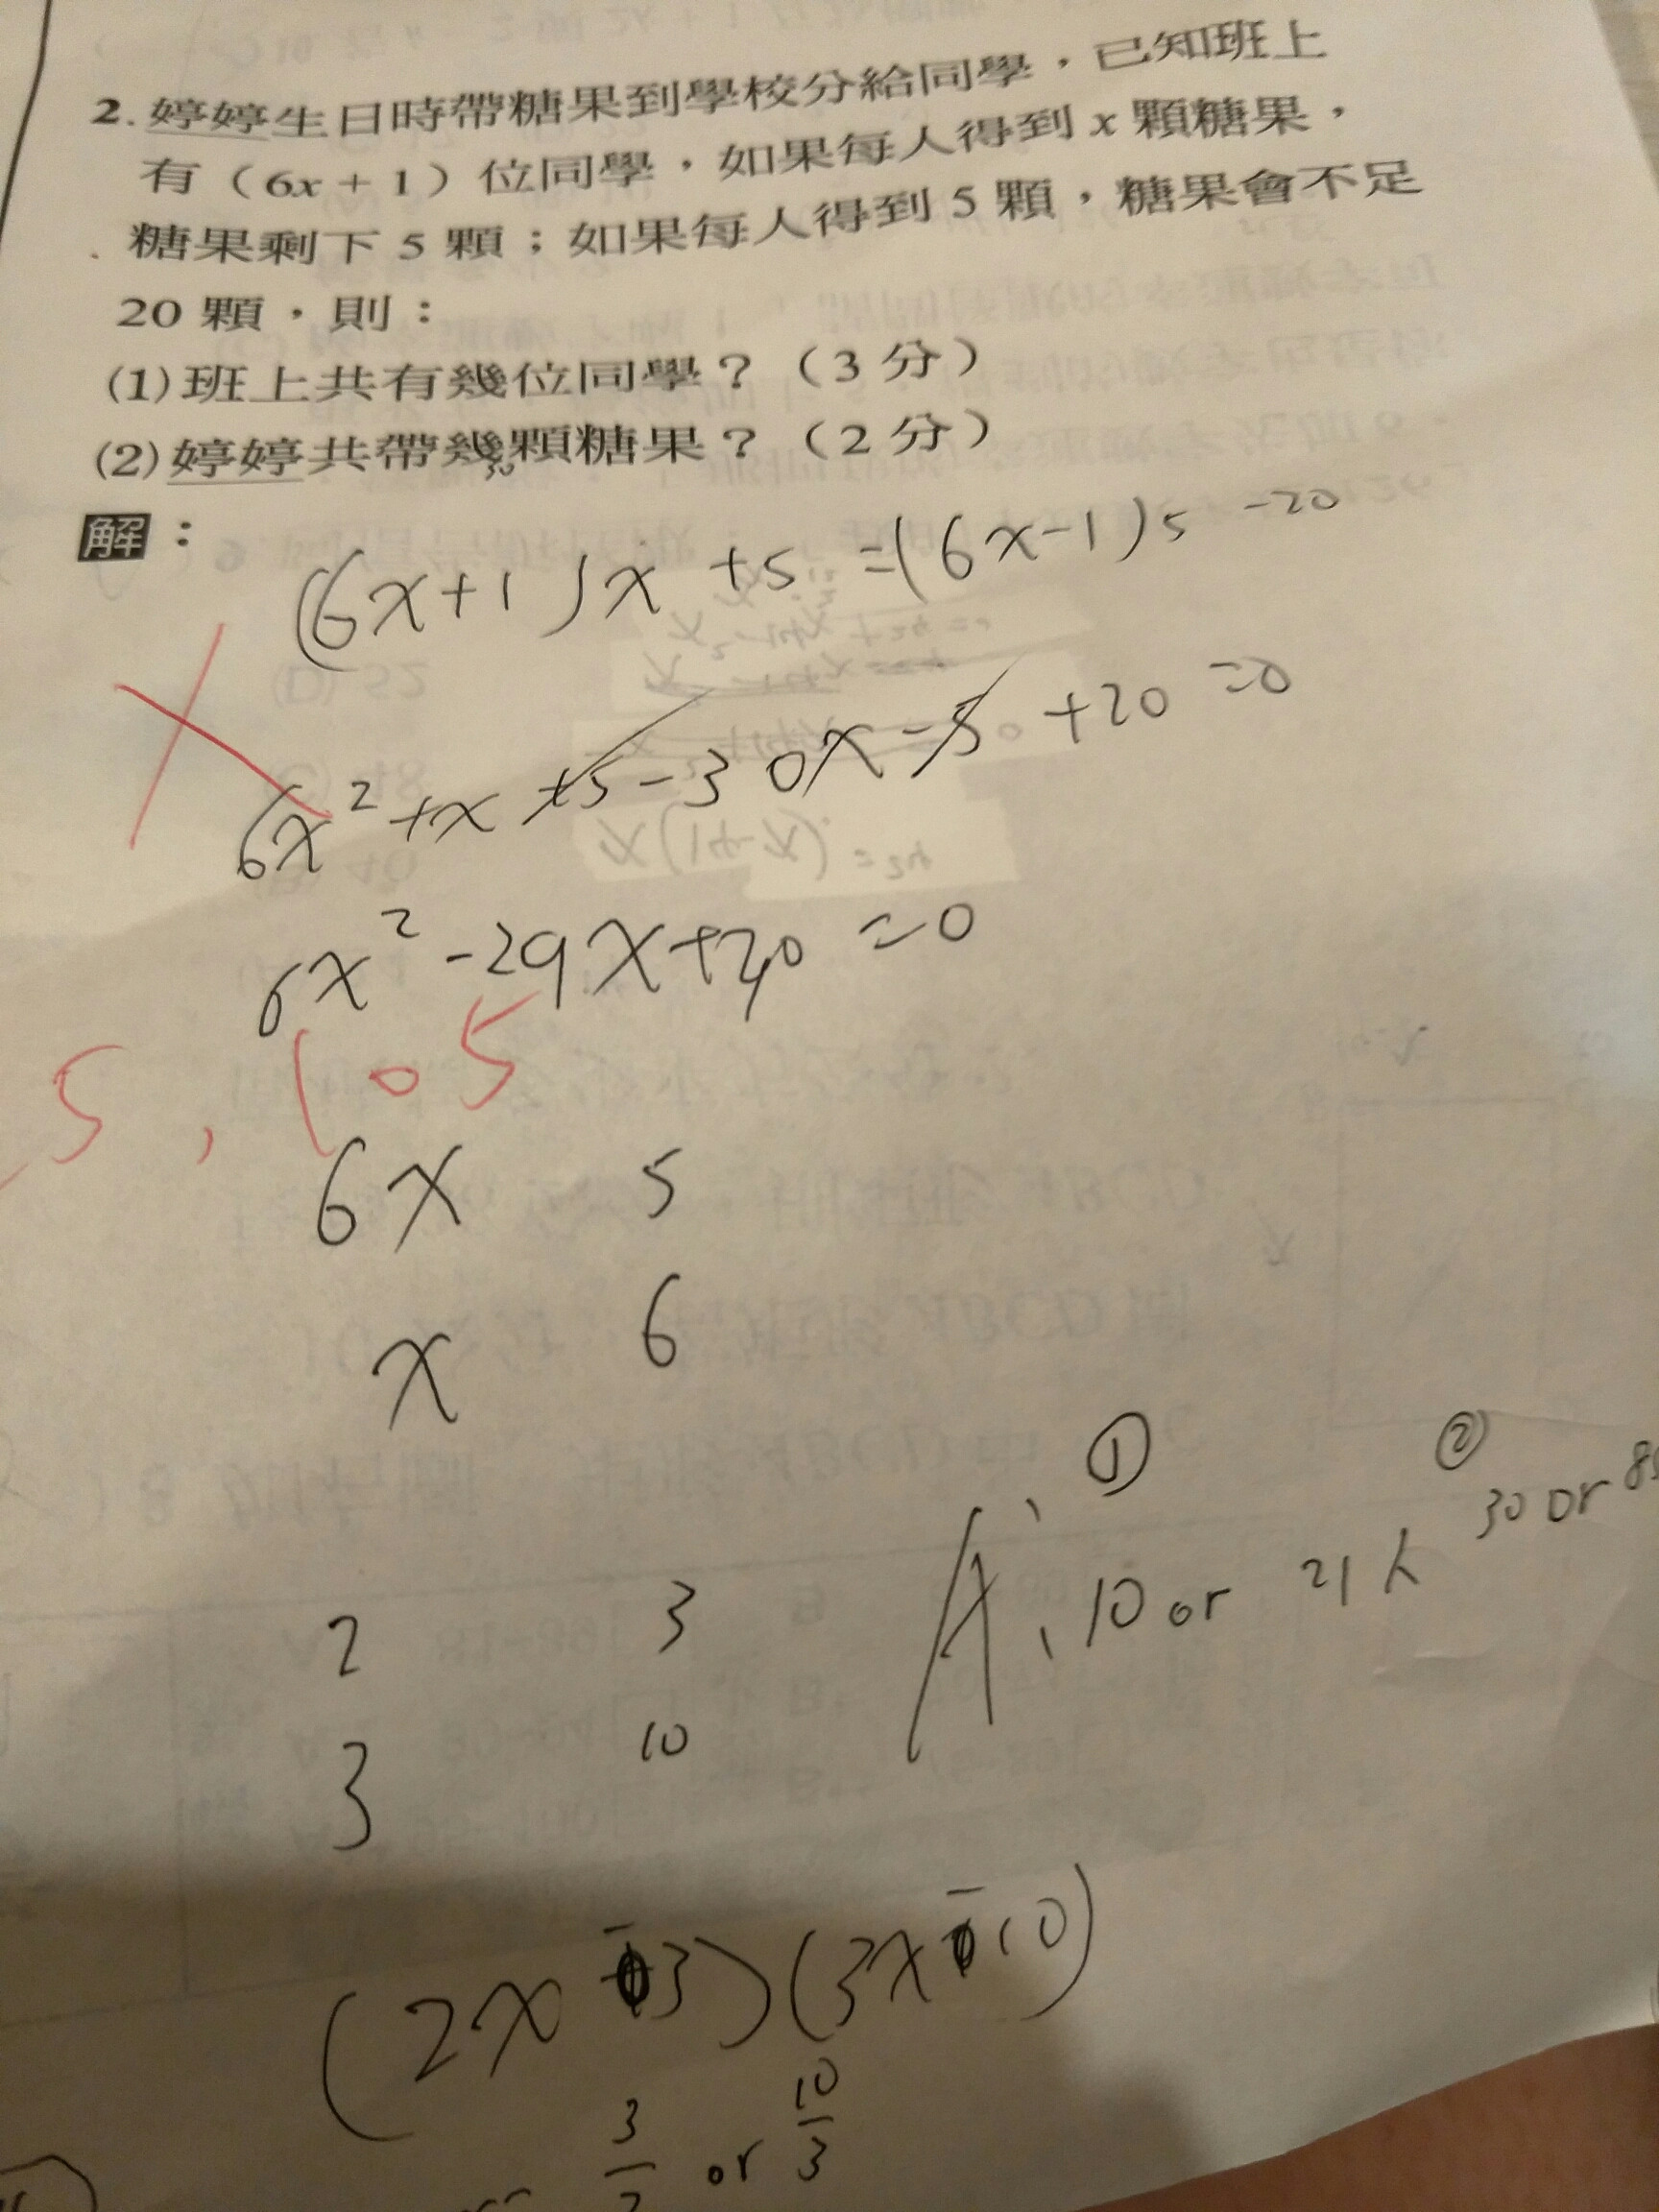 2. 婷婷生日時帶糖果到學校分給同學,已知班上
有(6x + 1)位同學,如果每人得到 x 顆糖果,
糖果剩下 5 顆;如果每人得到 5 顆,糖果會不足
20 顆,則:
(1) 班上共有幾位同學?(3 分)
(2) 婷婷共帶幾顆糖果?(2 分)
30
解:
(6x+1)x +5 =(6x-1)5 -20
6x²+x+5-30x-5+20=0
6x²-29x+20=0
5,105
6x 5
x 6
① ②
A: 10 or 21人 30 or
2 3
3 10
(2x-3)(3x-10)
3/2 or 10/3